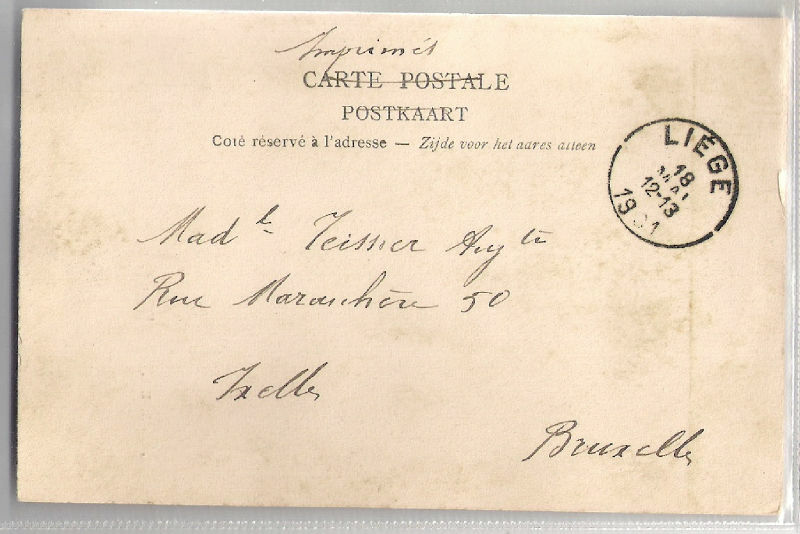 Imprimés
CARTE POSTALE
POSTKAART
Coté réservé à l'adresse — Zijde voor het adres alleen
LIÉGE
18
MAI
12-13
1901
Mad le Teissier
Rue Maraichère 50
Ixelles
Bruxelles